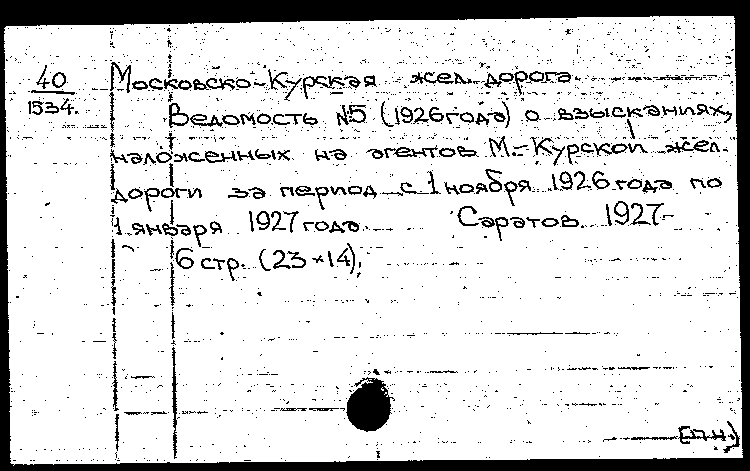 40
1534.
Московско-Курская жел. дорога.
Ведомость №5 (1926 года) о взысканиях,
наложенных на агентов М.-Курской жел.
дороги за период с 1 ноября 1926 года по
1 января 1927 года. Саратов. 1927-
6 стр. (23×14);
[п.н.]